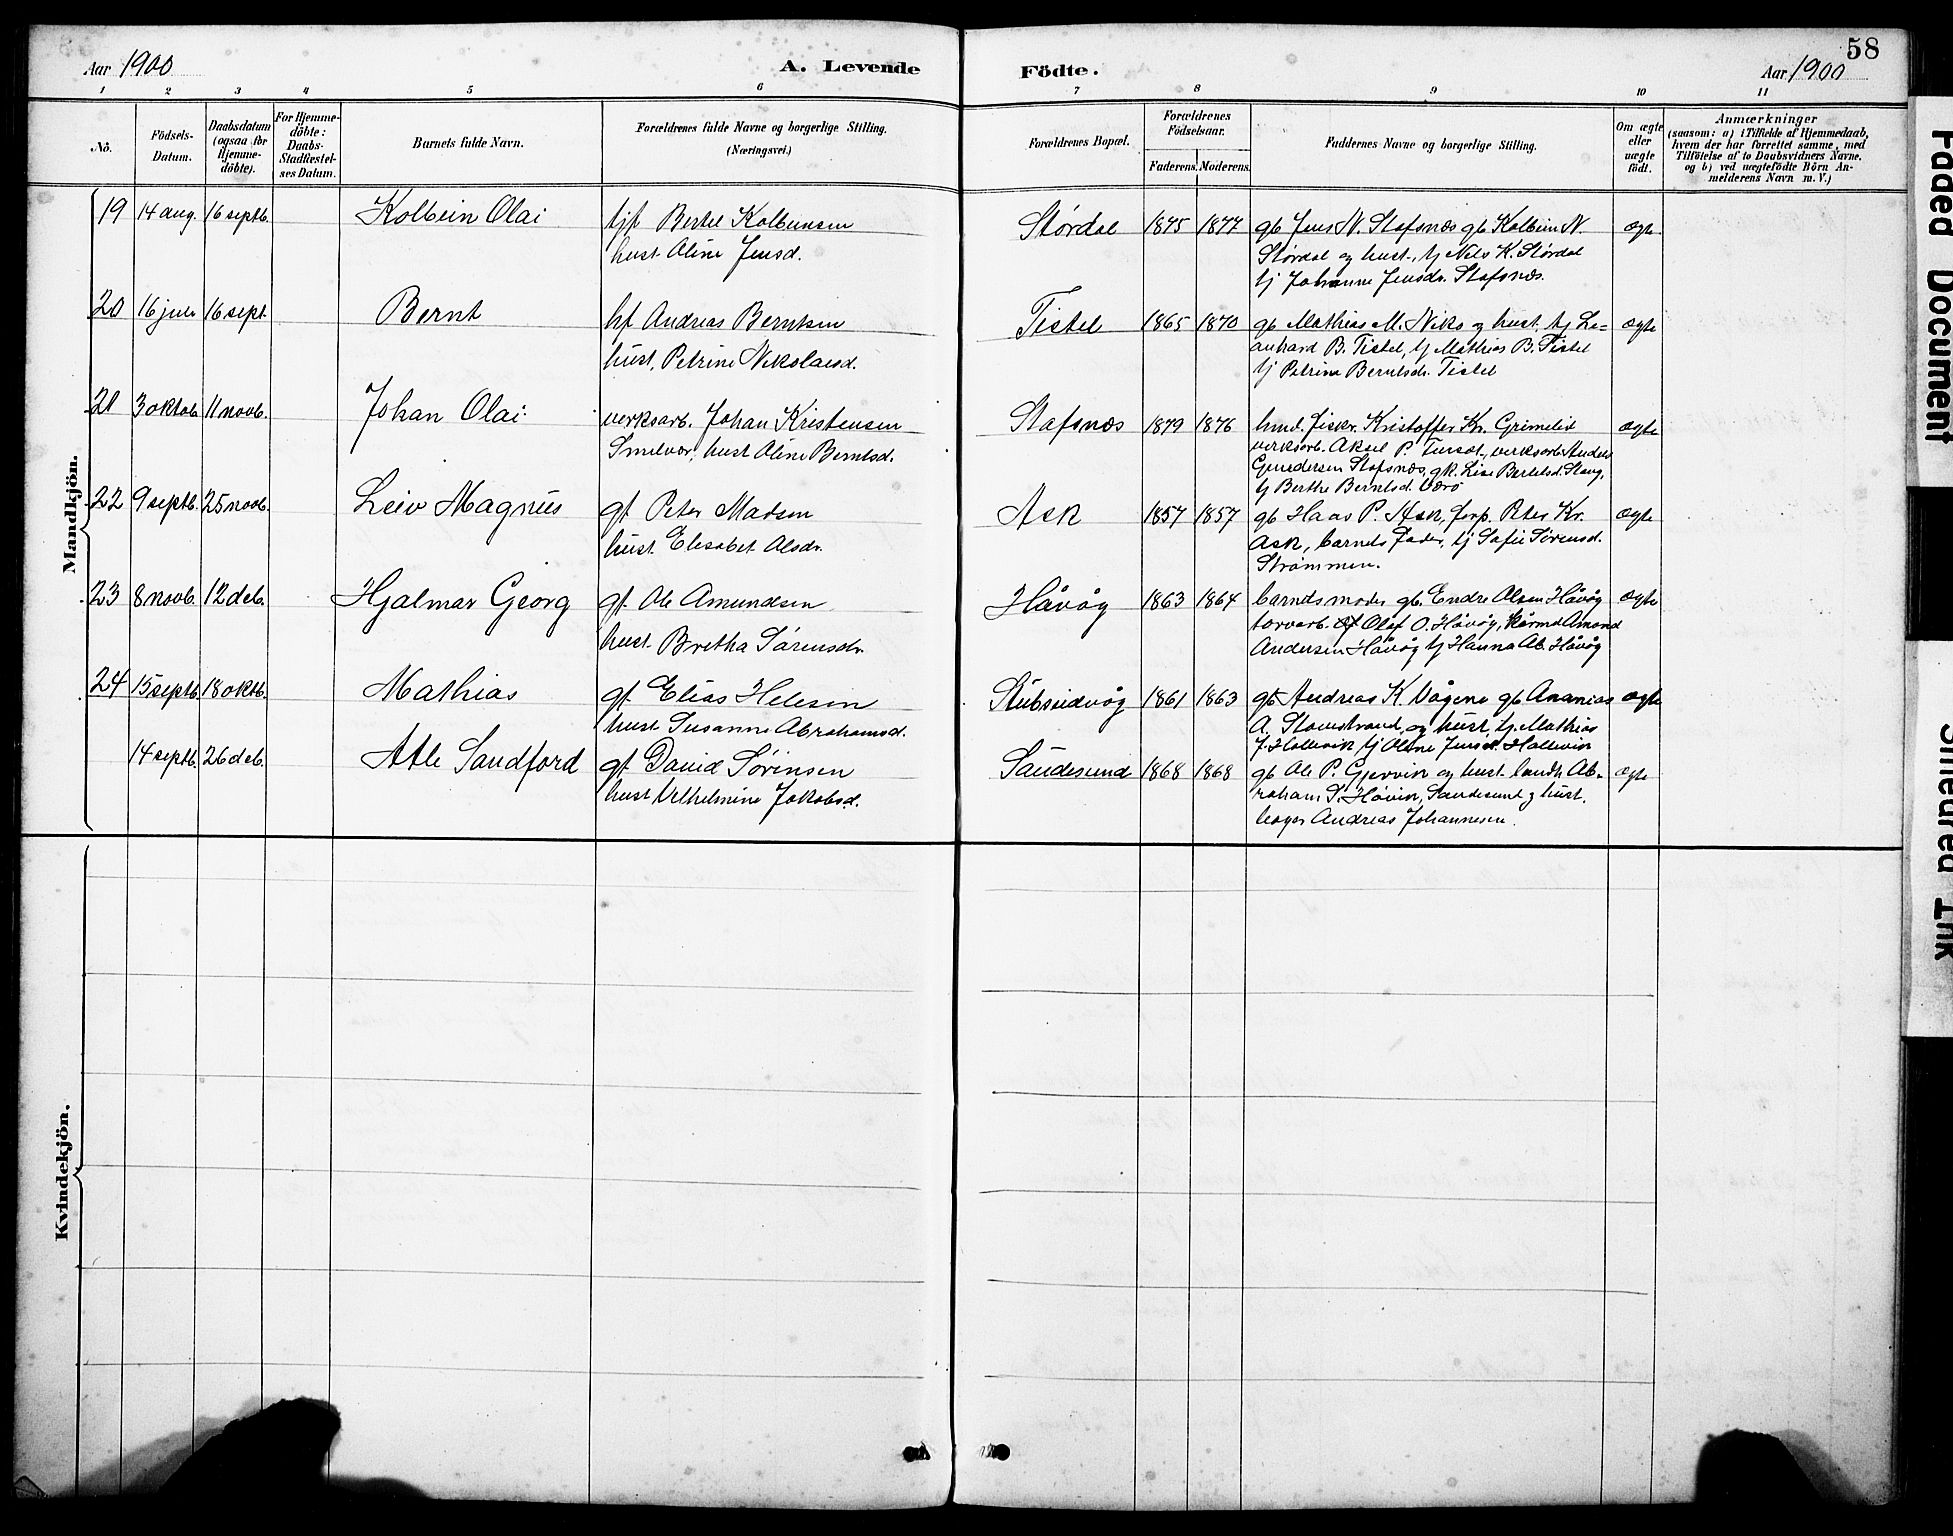 58
Aar 1900
A. Levende
Födte.
Aar 1900
1 2 3 4 5 6 7 8 9 10 11
No.
Födsels-
Datum.
Daabsdatum
(ogsaa for
Hjemme-
döbte).
For Hjemme-
döbte:
Daabs-
Stadfæstel-
ses Datum.
Barnets fulde Navn.
Forældrenes fulde Navne og borgerlige Stilling.
(Næringsvei.)
Forældrenes Bopæl.
Forældrenes
Födselsaar.
Faderens. Moderens.
Faddernes Navne og borgerlige Stilling.
Om ægte
eller
uægte
födt.
Anmærkninger
(saasom: a) i Tilfælde af Hjemmedaab,
hvem der har forrettet samme, med
Tilföielse af to Daabsvidners Navne.
og b) ved uægtefödte Börn An-
melderens Navn m. V.)
Mandkjön.
19 14 aug. 16 septb. Kolbein Olai Bertel Kolbeinsen
hust. Oline Jensd.
Størdal 1875 1877 gb Jens N. Stafsnæs gb Kolbein N. ægte
Størdal og hust., tj Nils K. Størdal
tj Johanne Jensdr. Stafsnæs.
20 16 juli 16 sept. Bernt bf Andreas Berntsen
hust. Petrine Nikolaisd.
Tistel 1865 1870 gb Mathias M. Niko og hust. tj Le- ægte
anhard B. Tistel, tj Mathias B. Tistel
tj Petrine Berntsdr. Tistel
21 3 oktob. 11 novb. Johan Olai verksarb. Johan Kristensen
Smelvær, hust Oline Berntsd.
Stafsnæs 1879 1876 Kristoffer Kr. Grimelid ægte
verksarb. Aksel P. verksarb. Anders
Stafsnæs, gk. Lise Bertelsd.
tj Berthe Berntsd. Værø
22 9 septb. 25 novb. Leiv Magnus gf Peter Madsen
hust. Elisabet Olsdr.
Ask 1857 1857 gb Hans P. Ask, forp. Peter Kr. ægte
Ask, barnets fader, tj Sofie Sørensd.
Strømmen.
23 8 novb. 12 deb. Hjalmar Georg gf. Ole Amundsen
hust. Bretha Sørensdr.
Håvåg 1863 1864 barnets moder gb. Endre Olsen Håvåg ægte
Olaf O. Håvåg, Amond
Andersen Håvåg tj Hanna Ab. Håvåg
24 15 septb. 18 oktb. Mathias gf. Elias Helesen
hust. Susanne Abrahamsd.
Stubseidvåg 1861 1863 gb Andreas K. Vågene gb Ananias ægte
A. Stavestrand og hust. tj. Mathias
J. Hollevik tj Oline Jensdr. Hollevik
14 septb. 26 deb. Atle Sandford gf David Sørensen
hust Vilhelmine Jakobsd.
Sandesund 1868 1868 gb Ole P. Gjervik og hust. landh. Ab- ægte
raham S. Høivik, Sandesund og hust.
bager Andreas Johannesen.
Kvindekjön.
Faded Document
Smeared Ink